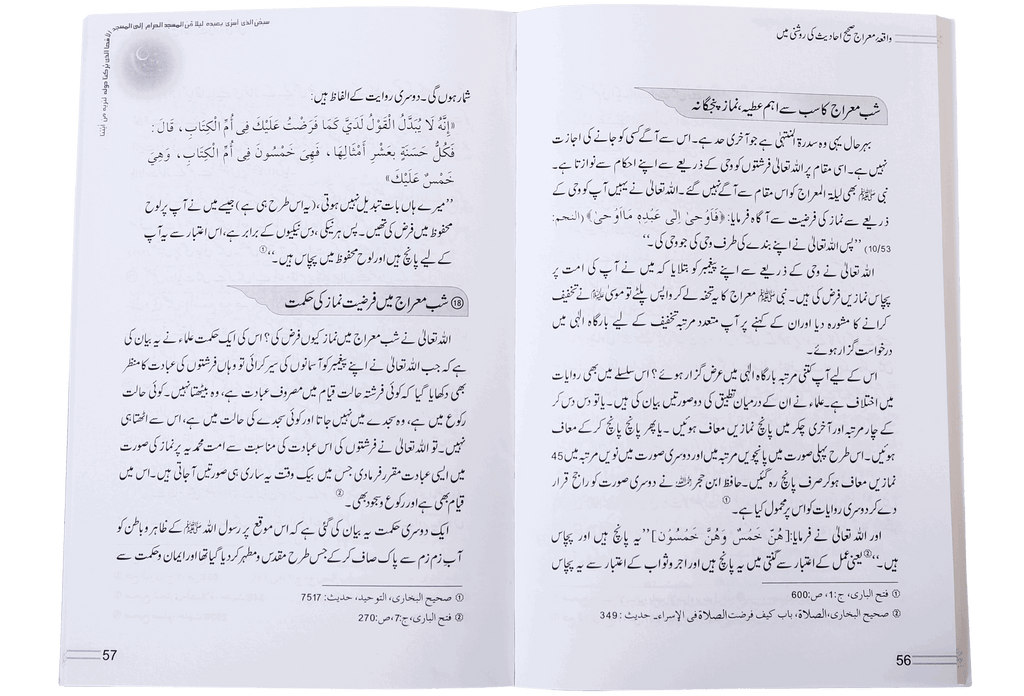 واقعۂ معراج صحیح احادیث کی روشنی میں
شب معراج کا سب سے اہم عطیہ، نماز پنجگانہ
بہر حال یہی وہ سدرۃ المنتہیٰ ہے جو آخری حد ہے۔ اس سے آگے کسی کو جانے کی اجازت
نہیں ہے۔ اسی مقام پر اللہ تعالیٰ فرشتوں کو وحی کے ذریعے سے اپنے احکام سے نوازتا ہے۔
نبی ﷺ بھی لیلۃ المعراج کو اس مقام سے آگے نہیں گئے۔ اللہ تعالیٰ نے یہیں آپ کو وحی کے
ذریعے سے نماز کی فرضیت سے آگاہ فرمایا: ﴿فَاَوْحٰى اِلٰى عَبْدِهٖ مَاۤ اَوْحٰى﴾ (النجم:
10/53) ’’پس اللہ تعالیٰ نے اپنے بندے کی طرف وحی کی جو وحی کی۔‘‘
اللہ تعالیٰ نے وحی کے ذریعے سے اپنے پیغمبر کو بتلایا کہ میں نے آپ کی امت پر
پچاس نمازیں فرض کی ہیں۔ نبی ﷺ معراج کا یہ تحفہ لے کر واپس پلٹے تو موسیٰ علیہ السلام نے تخفیف
کرانے کا مشورہ دیا اور ان کے کہنے پر آپ متعدد مرتبہ تخفیف کے لیے بارگاہ الٰہی میں
درخواست گزار ہوئے۔
اس کے لیے آپ کتنی مرتبہ بارگاہ الٰہی میں عرض گزار ہوئے؟ اس سلسلے میں بھی روایات
میں اختلاف ہے۔ علماء نے ان کے درمیان تطبیق کی دو صورتیں بیان کی ہیں۔ یا تو دس دس کر
کے چار مرتبہ اور آخری چکر میں پانچ نمازیں معاف ہوئیں۔ یا پھر پانچ پانچ کر کے معاف
ہوئیں۔ اس طرح پہلی صورت میں پانچویں مرتبہ میں اور دوسری صورت میں نویں مرتبہ میں 45
نمازیں معاف ہو کر صرف پانچ رہ گئیں۔ حافظ ابن حجر رحمہ اللہ نے دوسری صورت کو راجح قرار
دے کر دوسری روایات کو اس پر محمول کیا ہے۔①
اور اللہ تعالیٰ نے فرمایا: [هُنَّ خَمْسٌ وَهُنَّ خَمْسُوْن] ’’یہ پانچ ہیں اور پچاس
ہیں۔‘‘② یعنی عمل کے اعتبار سے گنتی میں یہ پانچ ہیں اور اجر و ثواب کے اعتبار سے یہ پچاس
① فتح الباری، ج:1، ص:600
② صحیح البخاری، الصلاة، باب کیف فرضت الصلاة فی الإسراء۔ حدیث: 349
56
سبحٰن الذی أسرٰی بعبده لیلا مّن المسجد الحرام إلی المسجد
الأقصا الذی بٰرکنا حوله لنریه من اٰیٰتنا
شمار ہوں گی۔ دوسری روایت کے الفاظ ہیں:
«إِنَّهُ لَا يُبَدَّلُ الْقَوْلُ لَدَيَّ كَمَا فَرَضْتُ عَلَيْكَ فِي أُمِّ الْكِتَابِ، قَالَ:
فَكُلُّ حَسَنَةٍ بِعَشْرِ أَمْثَالِهَا، فَهِيَ خَمْسُونَ فِي أُمِّ الْكِتَابِ، وَهِيَ
خَمْسٌ عَلَيْكَ»
’’میرے ہاں بات تبدیل نہیں ہوتی، (یہ اس طرح ہی ہے) جیسے میں نے آپ پر لوح
محفوظ میں فرض کی تھیں۔ پس ہر نیکی، دس نیکیوں کے برابر ہے، اس اعتبار سے یہ آپ
کے لیے پانچ ہیں اور لوح محفوظ میں پچاس ہیں۔‘‘①
⑱ شب معراج میں فرضیت نماز کی حکمت
اللہ تعالیٰ نے شب معراج میں نماز کیوں فرض کی؟ اس کی ایک حکمت علماء نے یہ بیان کی
ہے کہ جب اللہ تعالیٰ نے اپنے پیغمبر کو آسمانوں کی سیر کرائی تو وہاں فرشتوں کی عبادت کا منظر
بھی دکھایا گیا کہ کوئی فرشتہ حالت قیام میں مصروف عبادت ہے، وہ بیٹھتا نہیں۔ کوئی حالت
رکوع میں ہے، وہ سجدے میں نہیں جاتا اور کوئی سجدے کی حالت میں ہے، اس سے اٹھتا ہی
نہیں۔ تو اللہ تعالیٰ نے فرشتوں کی اس عبادت کی مناسبت سے امت محمدیہ پر نماز کی صورت
میں ایسی عبادت مقرر فرمادی جس میں بیک وقت یہ ساری ہی صورتیں آجاتی ہیں۔ اس میں
قیام بھی ہے اور رکوع و سجود بھی۔②
ایک دوسری حکمت یہ بیان کی گئی ہے کہ اس موقع پر رسول اللہ ﷺ کے ظاہر و باطن کو
آب زم زم سے پاک صاف کر کے جس طرح مقدس و مطہر کر دیا گیا تھا اور ایمان و حکمت سے
① صحیح البخاری، التوحید، حدیث: 7517
② فتح الباری، ج:7، ص:270
57